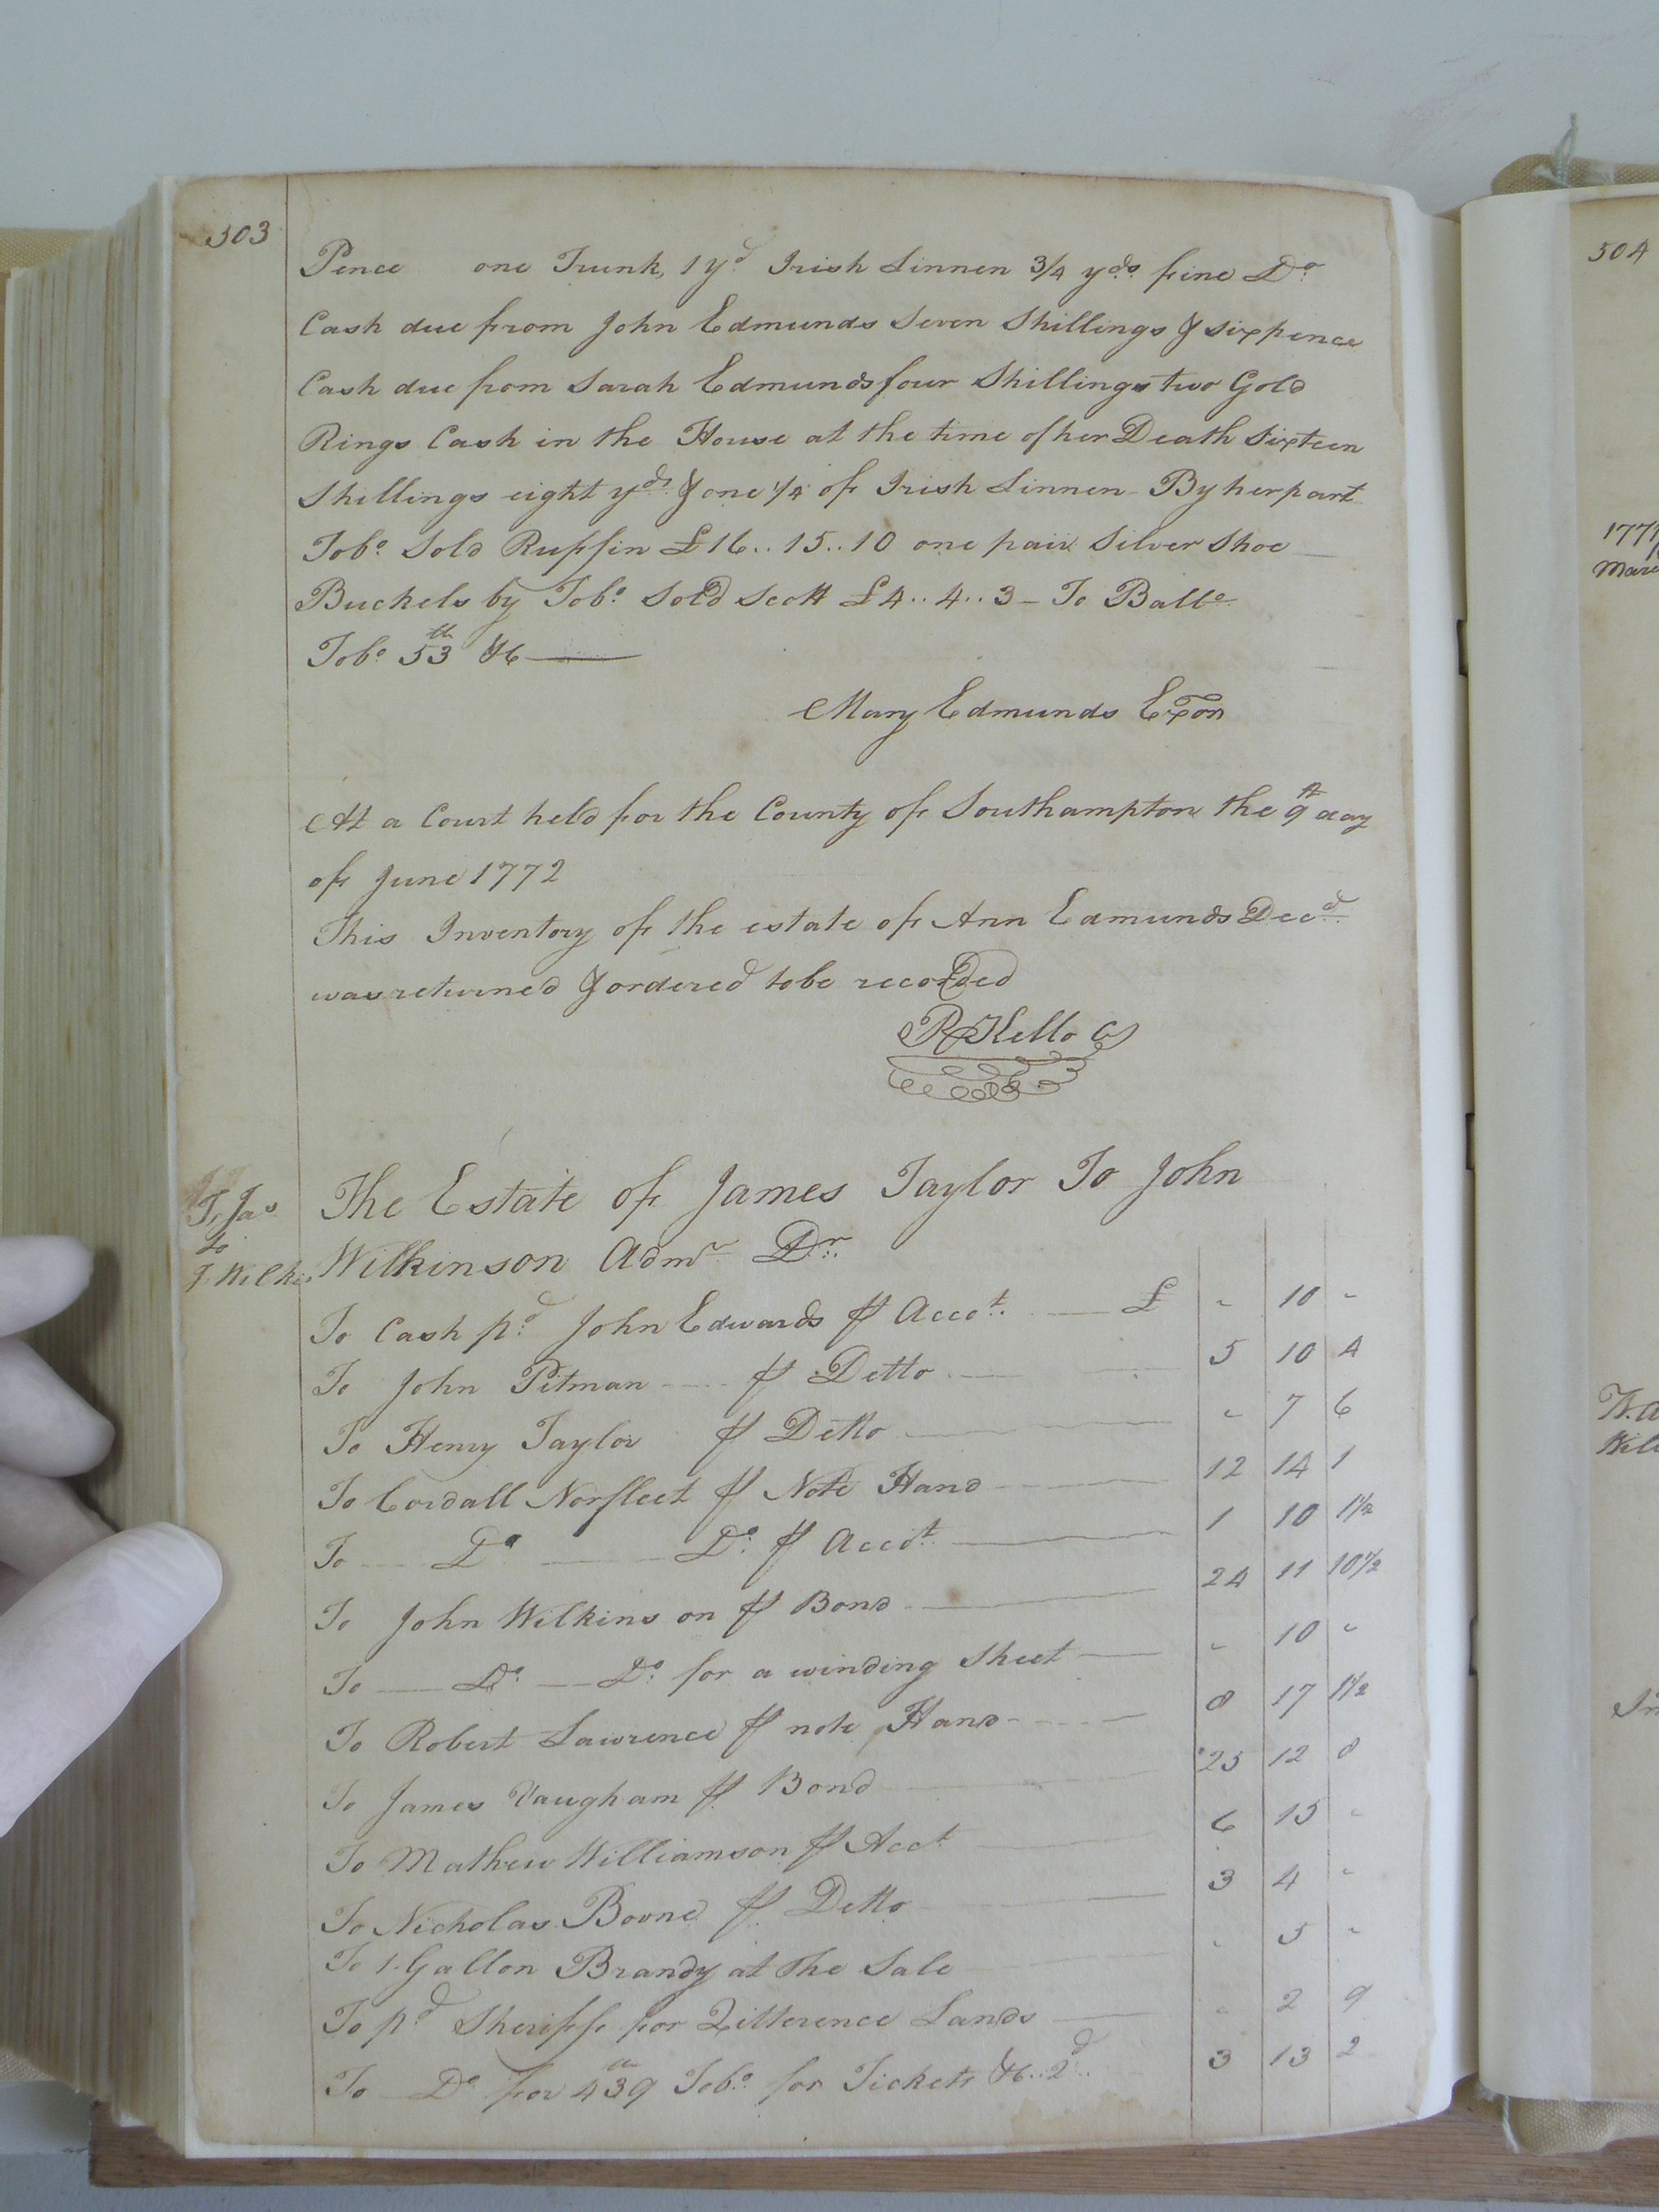 503
Pence one Trunk, 1 yd Irish Linnen 3/4 yds. fine Do
Cash due from John Edmunds Seven Shillings & sixpence
Cash due from Sarah Edmunds four Shillings two Gold
Rings Cash in the House at the time of her Death Sixteen
Shillings eight yds. & one 1/4 of Irish Linnen - By her part
Tobo. Sold Ruffin £16..15..10 one pair Silver Shoe
Buckels by Tobo. Sold Scott £4..4..3 - To Ballo
Tobo. 53th
Mary Edmunds Exon
At a Court held for the County of Southampton the 9th day
of June 1772
This Inventory of the estate of Ann Edmunds Decd.
was returned & ordered to be recorded
R Kello C
T, Jas
to
J. Wilki
The Estate of James Taylor To John
Wilkinson Admr Dr.
To Cash pd. John Edwards ⅌ Accot. £ " 10 "
To John Pitman ⅌ Detto 5 10 4
To Henry Taylor ⅌ Detto " 7 6
To Cordall Norfleet ⅌ Note Hand 12 14 1
To Do Do. ⅌ Accot. 1 10 1 1/2
To John Wilkins on ⅌ Bond 24 11 10 1/2
To Do. Do. for a winding Sheet " 10 "
To Robert Lawrence ⅌ note Hand 8 17 1 1/2
To James Vaugham ⅌ Bond 25 12 8
To Mathew Williamson ⅌ Acct. 6 15 "
To Nicholas Boone ⅌ Detto 3 4 "
To 1 Gallon Brandy at the Sale " 5 "
To pd Sheriff for Quitterence Lands " 2 9
To Do for 439th Tobo. for Tickets 2d. 3 13 2
504